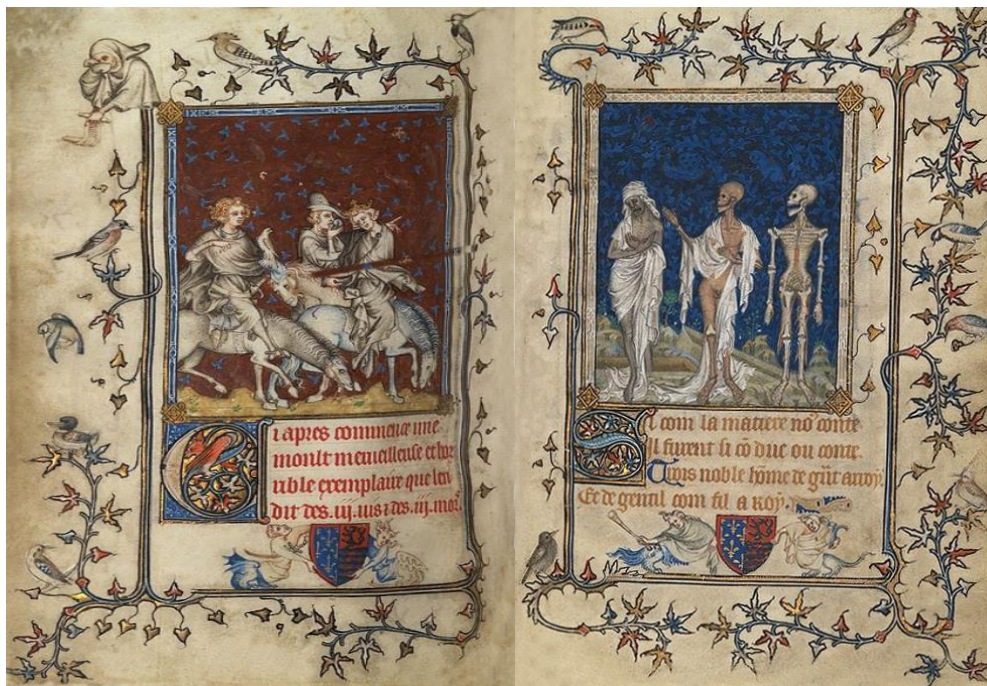 Ci apres commence une
moult merueilleuse et hor
rible exemplaire que len
dit des .iij. uis ⁊ des .iij. mors.
Si com la matiere nō conte
Il furent si cō duc ou conte.
Trois noble hōme de grāt arroy
Et de gentil com fil a roy.